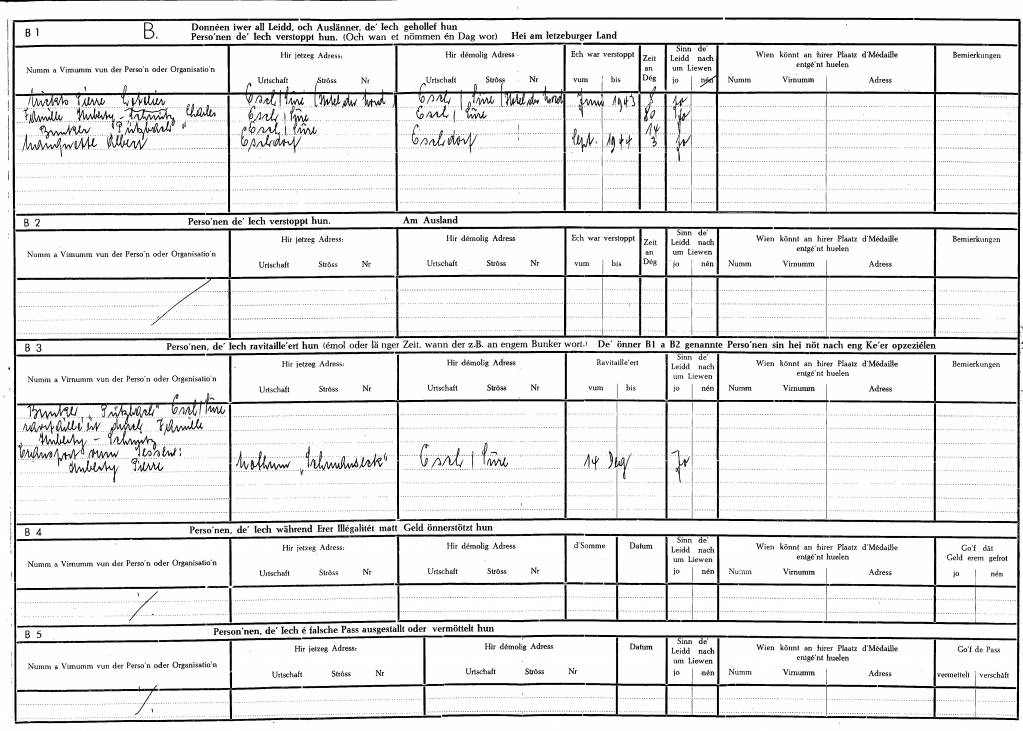 B 1 B. Donnéen iwer all Leidd, och Auslänner, de' Iech gehollef hun
Perso'nen de' Iech verstoppt hun. (Och wan et nömmen én Dag wor) Hei am letzeburger Land
Numm a Virnumm vun der Perso'n oder Organisatio'n
Hir jetzeg Adress:
Urtschaft Ströss Nr
Hir démolig Adress:
Urtschaft Ströss Nr
Ech war verstoppt
vum bis
Zeit an Dég
Sinn de' Leidd nach um Liewen
jo nén
Wien könnt an hirer Plaatz d'Médaille entgé'nt huelen
Numm Virnumm Adress
Bemierkungen
Pierre Hotelier Esch / Sûre (Hotel du Nord) Esch / Sûre (Hotel du Nord) Juni 1943 8 jo
Famille Huberty - Schmitz Charles Esch / Sûre Esch / Sûre 80 jo
Bunker "Pützbach" Esch / Sûre 14
Albert Eschdorf Eschdorf Sept. 1944 3 jo
B 2 Perso'nen de' Iech verstoppt hun. Am Ausland
Numm a Virnumm vun der Perso'n oder Organisatio'n
Hir jetzeg Adress:
Urtschaft Ströss Nr
Hir démolig Adress
Urtschaft Ströss Nr
Ech war verstoppt
vum bis
Zeit an Dég
Sinn de' Leidd nach um Liewen
jo nén
Wien könnt an hirer Plaatz d'Médaille entgé'nt huelen
Numm Virnumm Adress
Bemierkungen
B 3 Perso'nen, de' Iech ravitaille'ert hun (émol oder länger Zeit, wann der z.B. an engem Bunker wort.) De' önner B1 a B2 genannte Perso'nen sin hei nöt nach eng Ke'er opzeziélen
Numm a Virnumm vun der Perso'n oder Organisatio'n
Hir jetzeg Adress:
Urtschaft Ströss Nr
Hir démolig Adress
Urtschaft Ströss Nr
Ravitaille'ert
vum bis
Sinn de' Leidd nach um Liewen
jo nén
Wien könnt an hirer Plaatz d'Médaille entgé'nt huelen
Numm Virnumm Adress
Bemierkungen
Bunker "Pützbach" Esch/Sûre
durch Famille
Huberty - Schmitz
Transport vum Iessen:
Huberty Pierre Esch / Sûre 14 Deg Jo
B 4 Perso'nen, de' Iech während Erer Illégalitét matt Geld önnerstötzt hun
Numm a Virnumm vun der Perso'n oder Organisatio'n
Hir jetzeg Adress:
Urtschaft Ströss Nr
Hir démolig Adress
Urtschaft Ströss Nr
d'Somme
Datum
Sinn de' Leidd nach um Liewen
jo nén
Wien könnt an hirer Plaatz d'Médaille entgé'nt huelen
Numm Virnumm Adress
Go'f dât Geld erem gefrot
jo nén
B 5 Person'nen, de' Iech é falsche Pass ausgestallt oder vermöttelt hun
Numm a Virnumm vun der Perso'n oder Organisatio'n
Hir jetzeg Adress:
Urtschaft Ströss Nr
Hir démolig Adress
Urtschaft Ströss Nr
Datum
Sinn de' Leidd nach um Liewen
jo nén
Wien könnt an hirer Plaatz d'Médaille entgé'nt huelen
Numm Virnumm Adress
Go'f de Pass
vermettelt verschâft